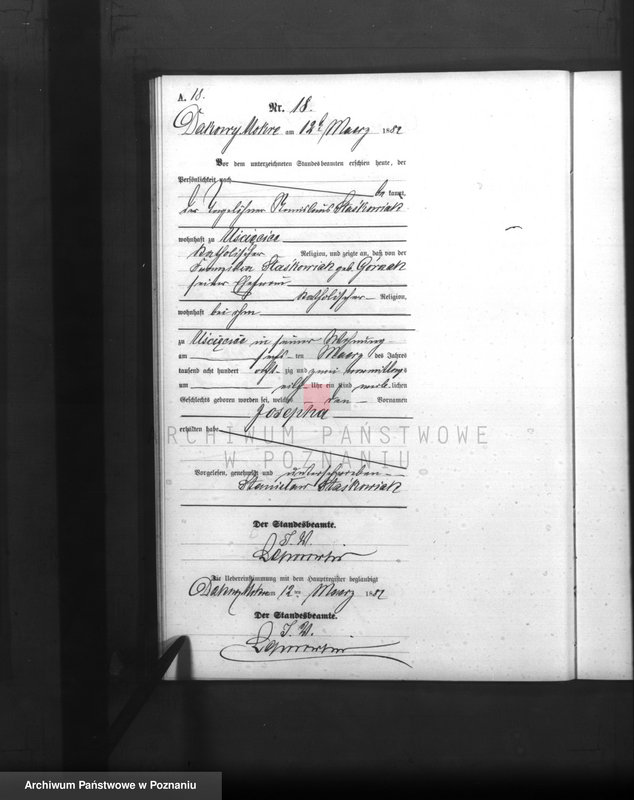 A. 18.
Nr. 18.
Dakowy Mokre am 12t Maerz 1882
Vor dem unterzeichneten Standesbeamten erschien heute, der
Persönlichkeit nach
be kannt,
der Tagelöhner Stanislaus Staśkowiak
wohnhaft zu Uścięcice
katholischer Religion, und zeigte an, daß von der
Franziska Staśkowiak geb. Górzak
seiner Ehefrau
katholischer Religion,
wohnhaft bei ihm
zu Uścięcice in seiner Wohnung
am sechs ten Maerz des Jahres
tausend acht hundert acht zig und zwei vormittags
um eilf Uhr ein Kind weib lichen
Geschlechts geboren worden sei, welches den Vornamen
Josepha
erhalten habe
ARCHIWUM PAŃSTWOWE
W POZNANIU
Vorgelesen, genehmigt und unterschrieben
Stanisław Staśkowiak
Der Standesbeamte.
I. V.
Die Uebereinstimmung mit dem Hauptregister beglaubigt
Dakowy Mokre am 12ten Maerz 1882
Der Standesbeamte.
I. V.
Archiwum Państwowe w Poznaniu